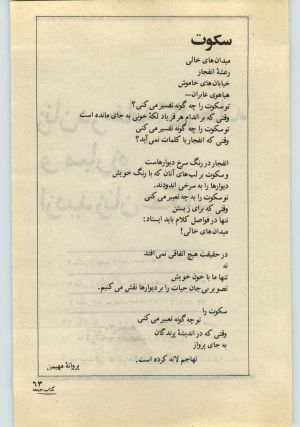 سکوت
میدان‌های خالی
رعشهٔ انفجار
خیابان‌های خاموش
هیاهوی عابران...
تو سکوت را چه گونه تفسیر می کنی؟
وقتی که بر اندام هر فریاد لکهٔ خونی به جای مانده است
تو سکوت را چه گونه تفسیر می کنی؟
وقتی که انفجار با کلمات نمی آید؟
انفجار در رنگ سرخ دیوارهاست
و سکوت بر لب‌های آنان که با رنگ خویش
دیوارها را به سرخی اندودند.
تو سکوت را به چه تعبیر می کنی
وقتی که برای زیستن
تنها در فواصل کلام باید ایستاد:
میدان‌های خالی!
در حقیقت هیچ اتفاقی نمی افتد
نه
تنها ما با خون خویش
تصویر بی‌جان حیات را بر دیوارها نقش می کنیم.
سکوت را
تو چه گونه تعبیر می کنی
وقتی که در اندیشهٔ پرندگان
به جای پرواز
تهاجم لانه کرده است.
پروانهٔ مهیمن
۶۳
کتاب جمعه